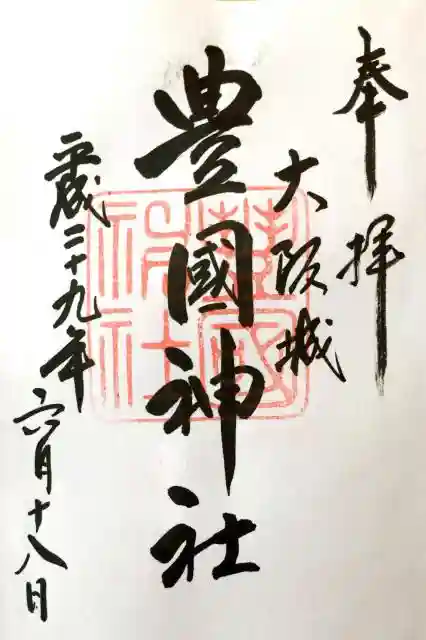 奉拝
大阪城
豊國神社
平成二十九年
六月十八日
豊國
神社